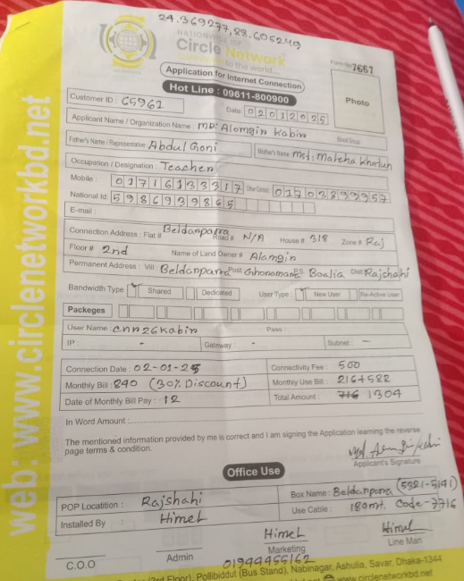 24.369277,88.605249
NATIONWIDE ISP
Circle Network
to the world...
Form No 7657
Application for Internet Connection
Hot Line : 09611-800900
Photo
Customer ID : C5962
Date: 02012025
Applicant Name / Organization Name : MD: Alomgin Kabin
Blood Group
Father's Name / Representative : Abdul Goni
Mother's Name : Mst: Maleha Khatun
Occupation / Designation : Teacher
Mobile : 01716133317
National Id: 5986939865
E-mail :
Connection Address : Flat # Beldanparra Road # N/A House # 318 Zone # Raj
Floor # 2nd Name of Land Owner # Alomgin
Permanent Address : Vill : Beldanparra Post: Ghoramara P.S: Boalia Dist: Rajshahi
Bandwidth Type : Shared Dedicated User Type : New User Re-Active User
Packeges
User Name : cnn26kabin Pass :
IP : - Gateway : - Subnet : -
Connection Date : 02-01-25 Connectivity Fee : 500
Monthly Bill : 840 (30% Discount) Monthly Use Bill : 216+588
Date of Monthly Bill Pay : 12 Total Amount : 716 1304
In Word Amount :
The mentioned information provided by me is correct and I am signing the Application learning the reverse
page terms & condition.
Applicant's Signature
Office Use
POP Locatition : Rajshahi Box Name : Beldanpara (5921-5141)
Installed By : Himel Use Cable : 180mt. Code-7716
Himel Himel
C.O.O Admin Marketing Line Man
01944455162
(3rd Floor), Pollibiddut (Bus Stand), Nabinagar, Ashulia, Savar, Dhaka-1344
www.circlenetworkbd.net
web: www.circlenetworkbd.net